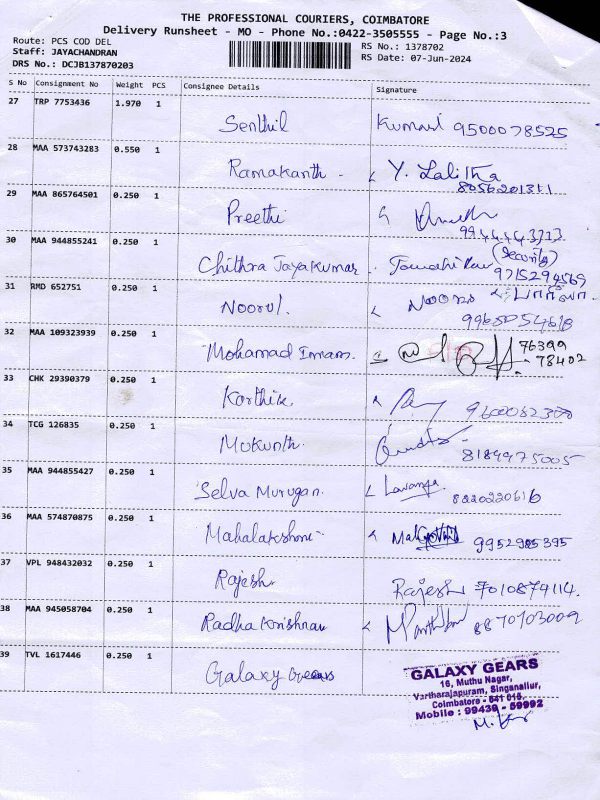 THE PROFESSIONAL COURIERS, COIMBATORE
Delivery Runsheet - MO - Phone No.:0422-3505555 - Page No.:3
Route: PCS COD DEL
Staff: JAYACHANDRAN
DRS No.: DCJB137870203
RS No.: 1378702
RS Date: 07-Jun-2024
S No Consignment No Weight PCS Consignee Details Signature
27 TRP 7753436 1.970 1
Senthil Kumar 9500078525
28 MAA 573743283 0.550 1
Ramakanth - Y. Lalitha
8056201311
29 MAA 865764501 0.250 1
Preethi
9944443713
30 MAA 944855241 0.250 1
(Security)
Chithra Jayakumar
9715294569
31 RMD 652751 0.250 1
Noorul.
9965054618
32 MAA 109323939 0.250 1
Mohamad Imam. 76399
- 78402
33 CHK 29390379 0.250 1
Karthik.
34 TCG 126835 0.250 1
Mukunth.
8189975005
35 MAA 944855427 0.250 1
Selva Murugan. Lavanya
8220220616
36 MAA 574870875 0.250 1
Mahalakshmi 9952985395
37 VPL 948432032 0.250 1
Rajesh. Rajesh 7010879114.
38 MAA 945058704 0.250 1
Radha Krishnan 8870703009
39 TVL 1617446 0.250 1
Galaxy Gears
GALAXY GEARS
16, Muthu Nagar,
Vartharajapuram, Singanallur,
Coimbatore - 641 015.
Mobile : 99439 - 59992